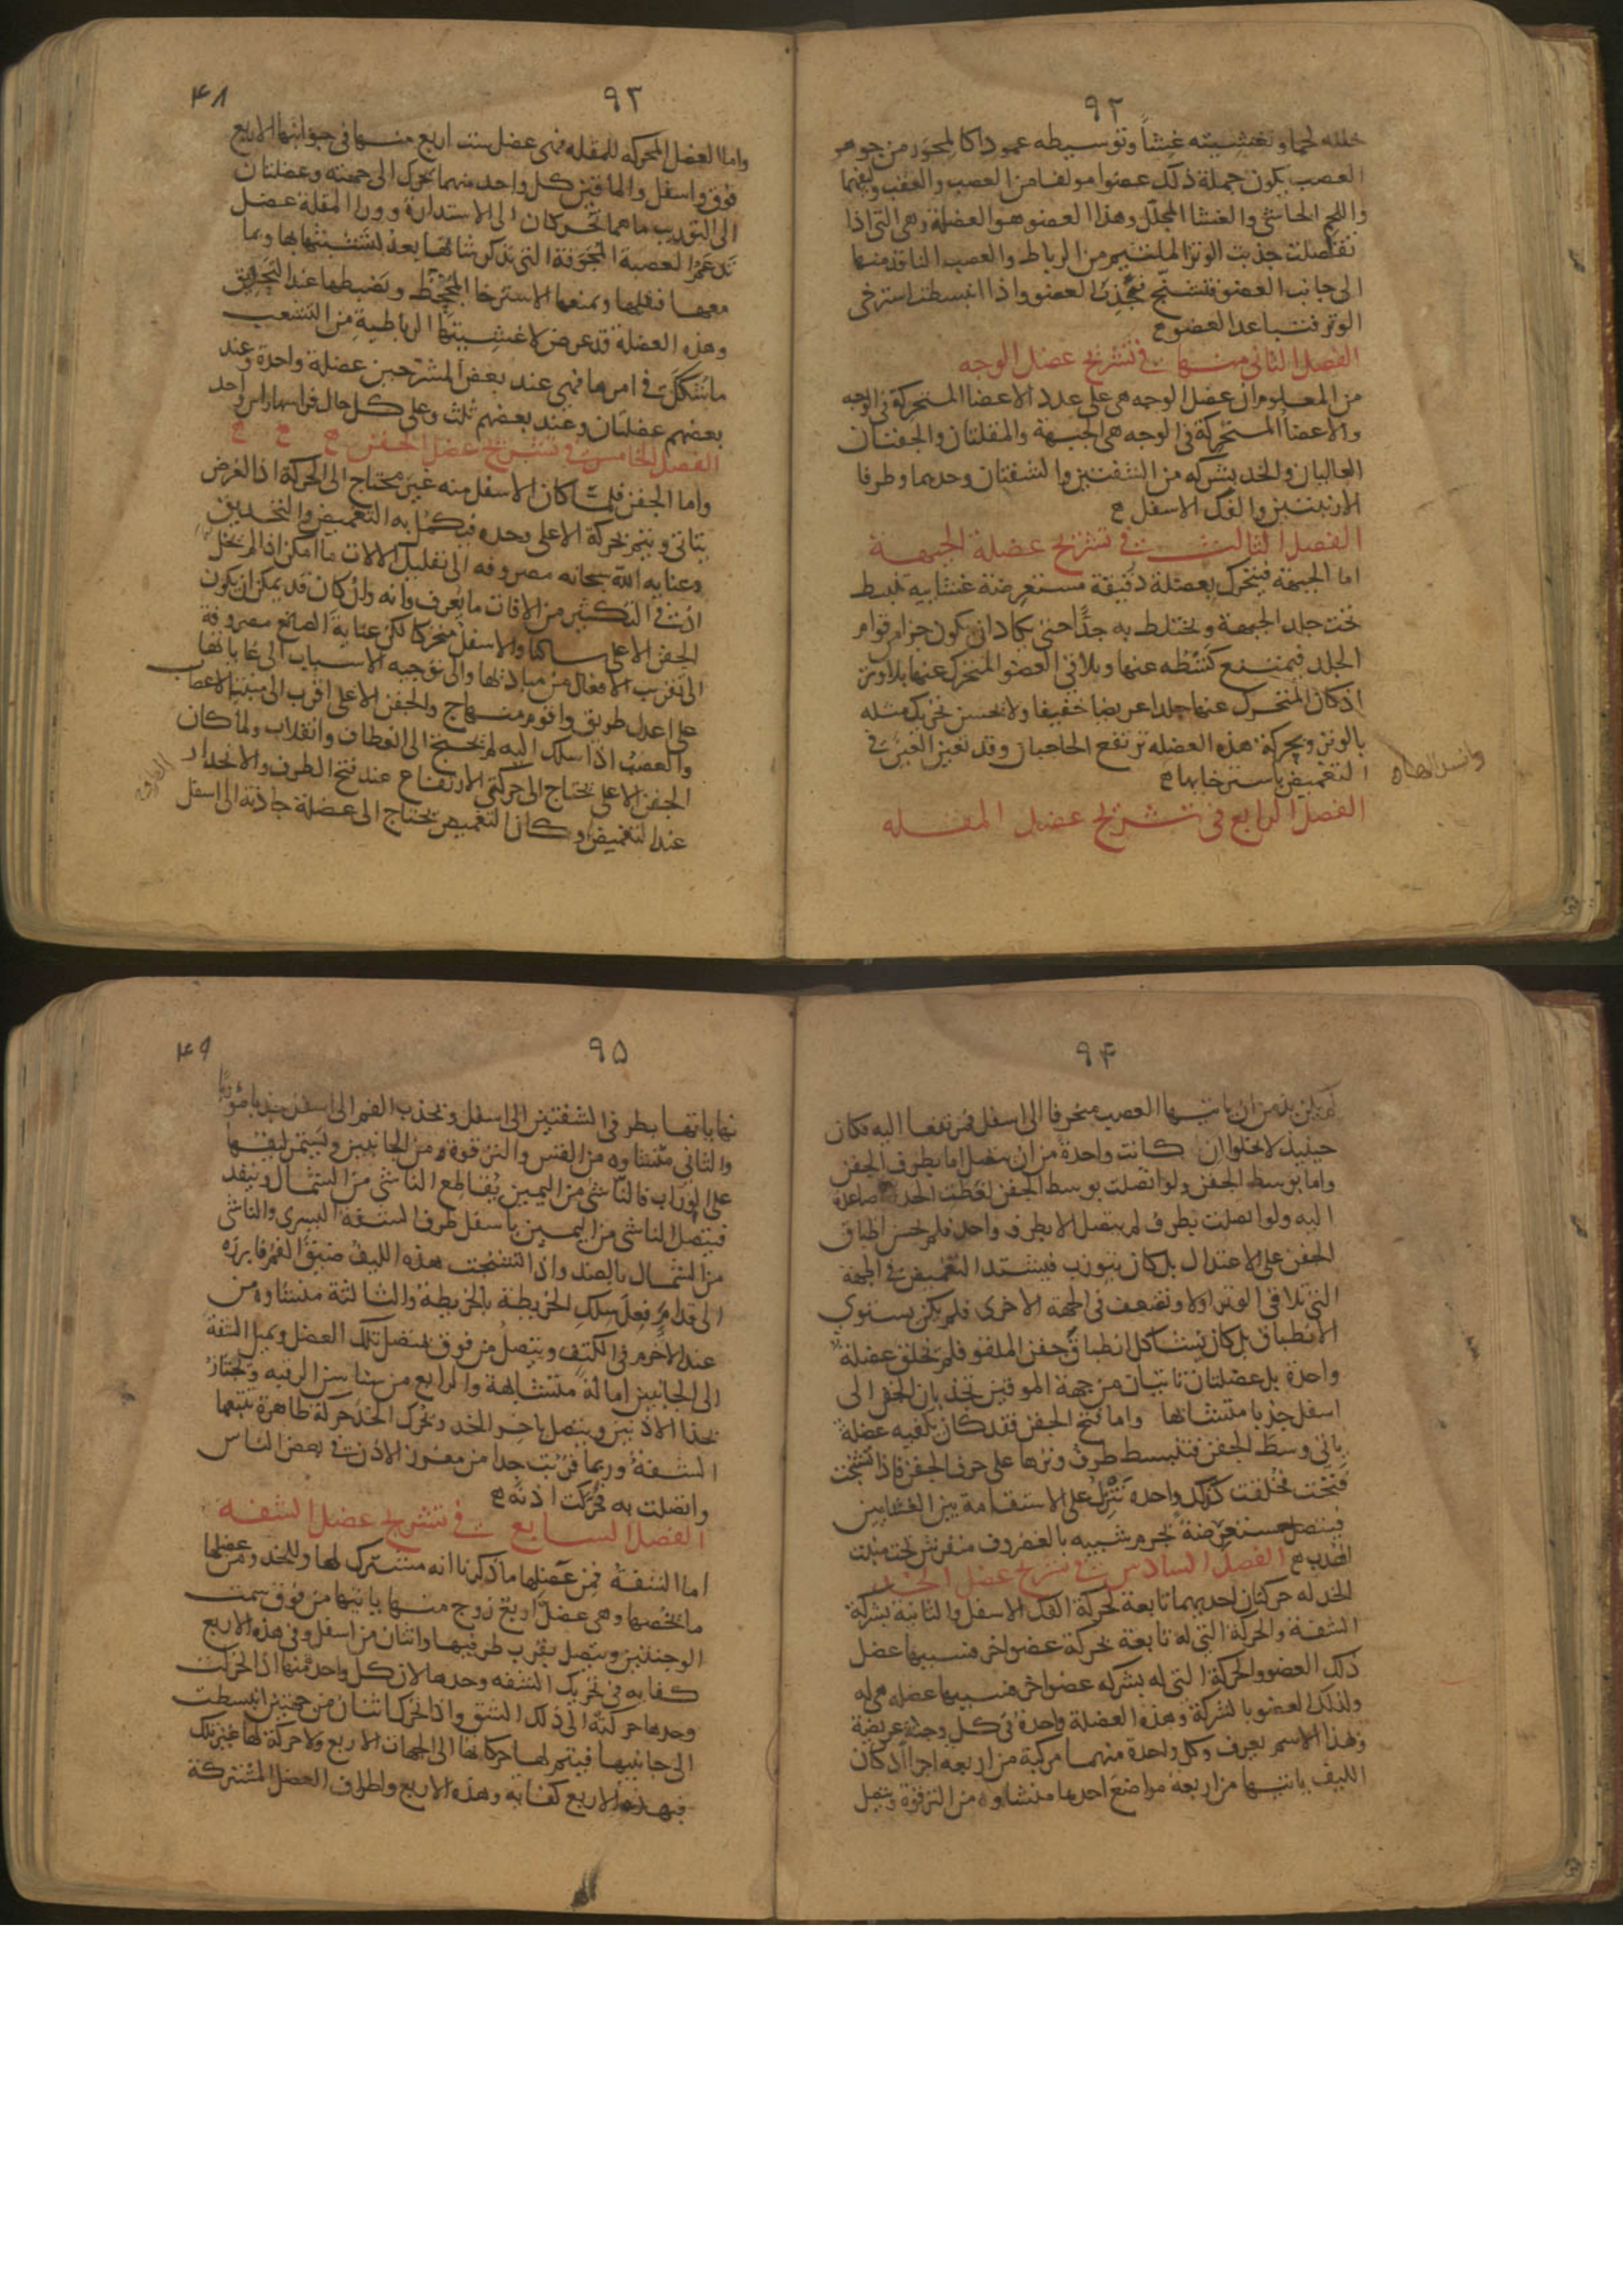 ٩٢
خلله لحما وتغشيته غشأ وتوسيطه عمودا كالمحور من جوهر
العصب يكون جملة ذلك عضوا مولفا من العصب والعقب وليفهما
واللحم الحاشى والغشا المجلل وهذا العضو هو العضلة وهى التى اذا
تقلصت جذبت الوتر الملتئم من الرباط والعصب النافذ منها
الى جانب العضو فتشنج فجذب العضو واذا انبسطت استرخى
الوتر فتباعد العضو
الفصل الثانى منها فى تشريح عضل الوجه
من المعلوم ان عضل الوجه هى على عدد الاعضا المتحركة فى الوجه
والاعضأ المتحركة فى الوجه هى الجبهة والمقلتان والجفنان
العاليان والخد بشركه من الشفتين والشفتان وحدهما وطرفا
الارنبتين والفك الاسفل
الفصل الثالث فى تشريح عضلة الجبهة
اما الجبهة فيتحرك بعضلة دقيقة مستعرضة غشاييه تنبسط
تحت جلد الجبهة ويختلط به جدًا حتى يكاد ان يكون جزا من قوام
الجلد فيمتنع كشطه عنها ويلاقى العضو المتحرك عنها بلا وتر
اذ كان المتحرك عنها جلدا عريضا خفيفا ولا يحسن تحريك مثله
بالوتر وبحركة هذه العضله ترتفع الحاجبان وقد تعين العين فى
التغميض باسترخايها
الفصل الرابع فى تشريح عضل المقله
٩٣
٤٨
واما العضل المحركه للمقله فهى عضل ست اربع منها فى جوانبها الاربع
فوق واسفل والماقين كل واحد منهما يحرك الى جهته وعضلتان
الى التوريب ما هما تحركان الى الاستدارة وورا المقلة عضل
تدعم العصبة المجوفة التى يذكر شانها بعد لتشبثها بها وبما
معها فيقلها ويمنعها الاسترخا المجحظ ويضبطها عند التحديق
وهذه العضلة قد عرض لاغشيتها الرباطية من التشعب
ما شكك فى امرها فهى عند بعض المشرحين عضلة واحدة وعند
بعضهم عضلتان وعند بعضهم ثلث وعلى كل حال فراسها راس واحد
الفصل الخامس فى تشريح عضل الجفن
واما الجفن فلما كان الاسفل منه غير محتاج الى الحركة اذا الغرض
يتاتى ويتم بحركة الاعلى وحده فيكمل به التغميض والتحديق
وعناية الله سبحانه مصروفه الى تقليل الالات ما امكن اذا لم يخل
ان فى التكثير من الافات ما يعرف وانه وان كان قد يمكن ان يكون
الجفن الاعلى ساكنا والاسفل متحركا لكن عناية الصانع مصروفة
الى تقريب الافعال من مباديها والى توجيه الاسباب الى غاياتها
على اعدل طريق واقوم منهاج والجفن الاعلى اقرب الى منبت الاعصاب
والعصب اذا سلك اليه لم يحتج الى انعطاف وانقلاب ولما كان
الجفن الاعلى يحتاج الى حركتى الارتفاع عند فتح الطرف والانحدار
عند التغميض وكان التغميض يحتاج الى عضلة جاذبة الى اسفل
٩٤
لم يكن بد من ان ياتيها العصب منحرفا الى اسفل ثم مرتفعا اليه فكان
حينيذ لا يخلوا ان كانت واحدة من ان يتصل اما بطرف الجفن
واما بوسط الجفن ولو اتصلت بوسط الجفن لغطت الحدقة صاعدة
اليه ولو اتصلت بطرف لم يتصل الا بطرف واحد فلم يحسن اطباق
الجفن على الاعتدال بل كان يتورب فيشتد التغميض فى الجهة
التى تلاقى الوتر اولا وتضعف فى الجهة الاخرى فلم يكن يستوى
الانطباق بل كان يشاكل انطباق جفن الملقو فلم يخلق عضلة
واحدة بل عضلتان ناتيان من جهة الموقين تجذبان الجفن الى
اسفل جذبا متشابها واما فتح الجفن فقد كان تكفيه عضلة
ياتى وسط الجفن فتنبسط طرف وترها على حرف الجفن فاذا تشنجت
فتحت فخلقت كذلك واحده تنزل على الاستقامة بين الغشايين
فيتصل مستعرضة بجرم شبيه بالغضروف منفرش تحت منبت
الهدب الفصل السادس فى تشريح عضل الخد
الخد له حركتان احديهما تابعة لحركة الفك الاسفل والثانية بشركة
الشفة والحركة التى له تابعة لحركة عضو اخر فسببها عضل
ذلك العضو والحركة التى له بشركه عضو اخر فسببها عضله هى له
ولذلك العضو بالشركة وهذه العضلة واحدة فى كل وجنة عريضة
وبهذا الاسم يعرف وكل واحدة منهما مركبة من اربعه اجزا اذ كان
الليف ياتيها من اربعة مواضع احدها منشاوه من الترقوة ويتصل
٩٥
٤٩
نهاياتها بطرفى الشفتين الى اسفل وتجذب الفم الى اسفل جذبا موربًا
والثانى منشاوه من القس والترقوة من الجانبين ويستمر ليفها
على الوراب فالناشى من اليمين يقاطع الناشى من الشمال وينفذ
فيتصل الناشى من اليمين باسفل طرف الشفة اليسرى والناشى
من الشمال بالضد واذا تشنجت هذه الليف ضيق الفم فابرزه
الى قدام فعل سلك الخريطة بالخريطة والثالثة منشاوه من
عند الاخرم فى الكتف ويتصل من فوق متصل تلك العضل ويميل الشفة
الى الجانبين امالة متشابهة والرابع من سناسن الرقبه ويجتاز
بحذا الاذنين ويتصل باجزا الخد ويحرك الخد حركة ظاهرة يتبعها
الشفة وربما قربت جدا من مغرز الاذن فى بعض الناس
واتصلت به فحركت اذنه
الفصل السابع فى تشريح عضل الشفه
اما الشفة فمن عضلها ما ذكرنا انه مشترك لها وللخد ومن عضلها
ما يخصها وهى عضل اربع زوج منها ياتيها من فوق سمت
الوجنتين ويتصل بقرب طرفيها واثنان من اسفل وفى هذه الاربع
كفاية فى تحريك الشفه وحدها لان كل واحد منها اذا تحركت
وحدها حركته الى ذلك الشق واذا تحرك اثنان من جهتين انبسطت
الى جانبيها فيتم لها حركاتها الى الجهات الاربع ولا حركة لها غير تلك
فبهذه الاربع كفايه وهذه الاربع واطراف العضل المشتركة